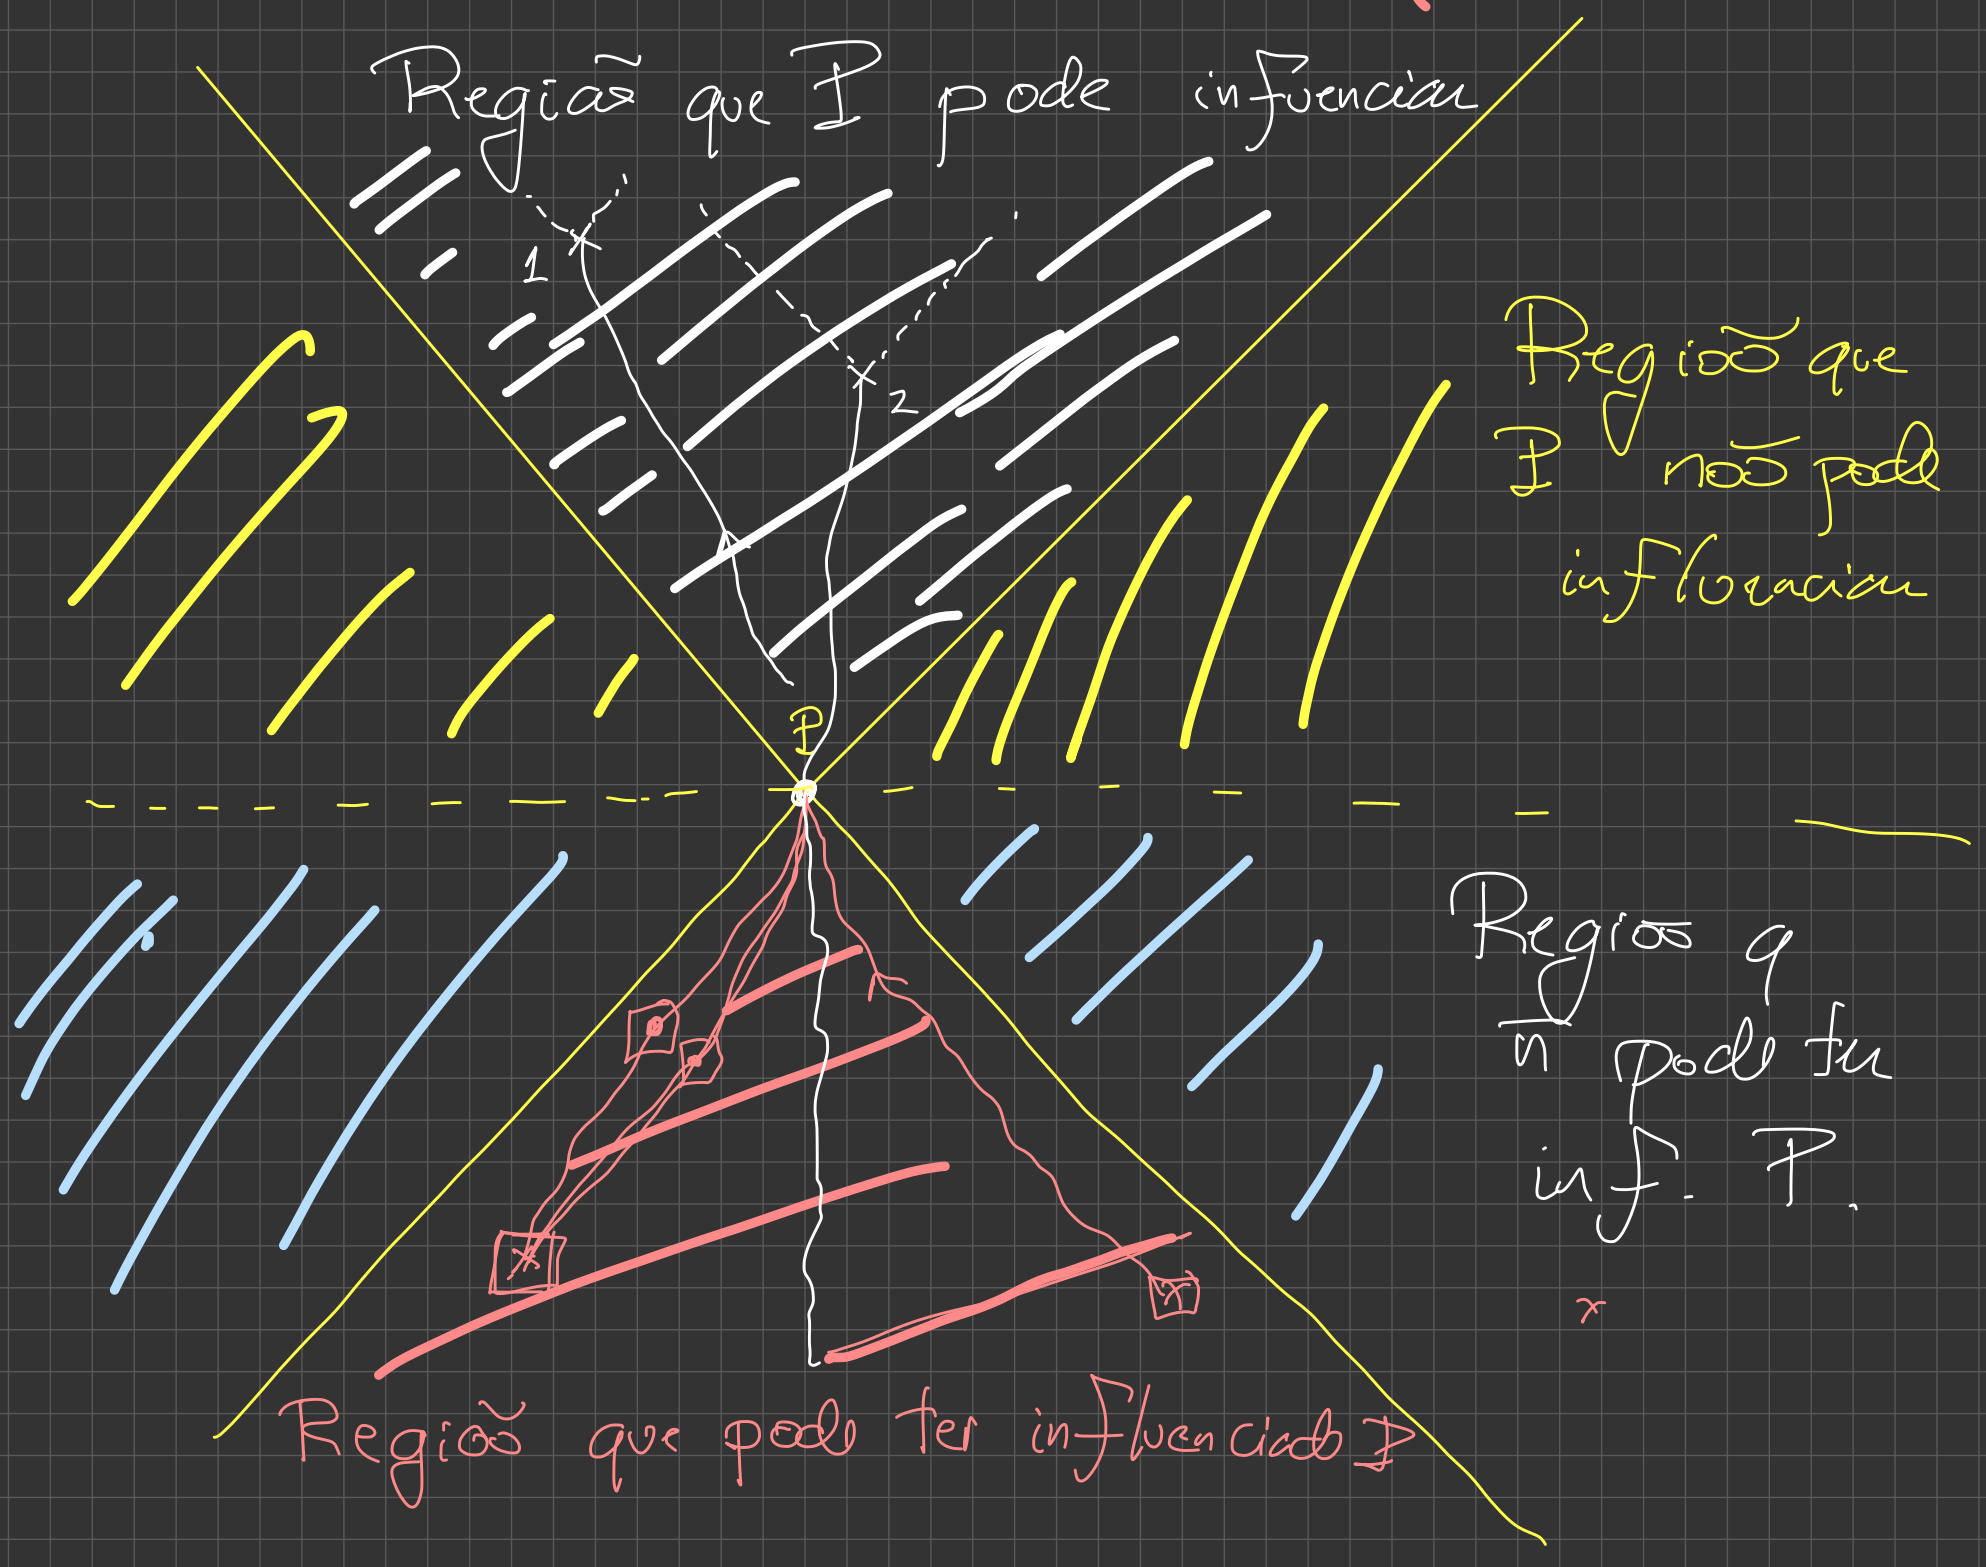 Região que P pode infuenciar
1
2
Região que
P não pode
influenciar
P
Região q
ñ pode ter
inf. P.
x
Região que pode ter influenciado P